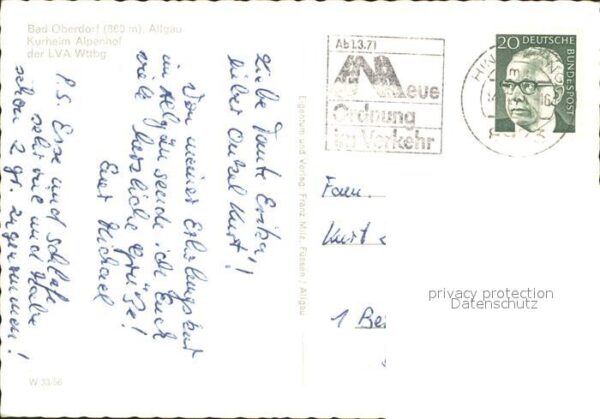 Bad Oberdorf (860 m), Allgäu
Kurheim Alpenhof
der LVA Wttbg.
Liebe Tante Erika!
Lieber Onkel Kurt!
Von meiner Erholungskur
im Allgäu sende ich Euch
viele herzliche Grüße!
Euer Michael
P.S. Esse und schlafe
sehr viel und habe
schon 2 zugenommen!
W 33-96
Eigentum und Verlag: Franz Milz, Füssen / Allgäu
Ab 1.3.71
Neue
Ordnung
im Verkehr
20 DEUTSCHE
BUNDESPOST
HIN
8975
Fam.
Kurt
1 Be
privacy protection
Datenschutz